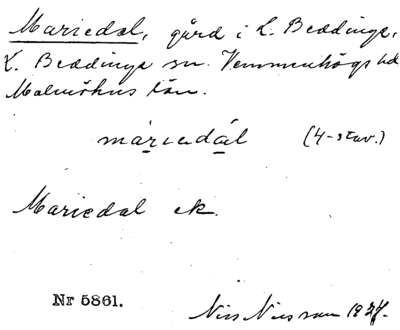 Mariedal, gård i L. Beddinge,
L. Beddinge sn. Vemmenhögs hd
Malmöhus län.
mariedal (4-stav.)
Mariedal ek.
Nr 5861.
Nils Nilsson 1927.